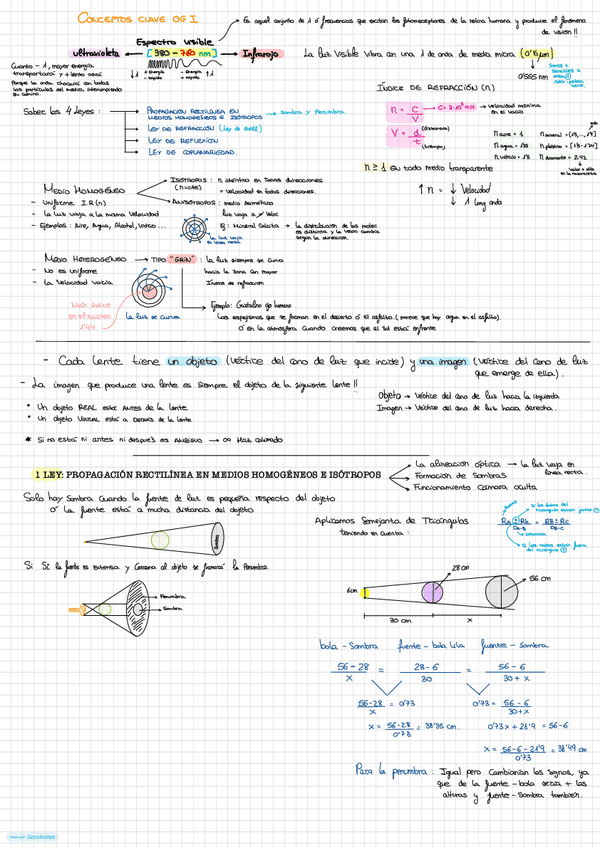 CONCEPTOS CLAVE OG I.
Es aquel conjunto de λ ó frecuencias que excitan los fotorreceptores de la retina humana y produce el fenómeno de visión!!
Espectro visible
ultravioleta [380 - 780 nm] Infrarojo
La luz visible vibra con una λ de onda de media micra (0'5μm)
0'555 nm
Cuanto - λ, mayor energía
transportará y + lento será
Porque la onda chocará con todas
las partículas del medio, interrumpiendo
su camino.
↓λ + Energía
- Energía ↑λ
ÍNDICE DE REFRACCIÓN (n)
Sabes las 4 leyes:
PROPAGACIÓN RECTILÍNEA EN
MEDIOS HOMOGÉNEOS E ISÓTROPOS → Sombra y Penumbra
LEY DE REFRACCIÓN (Ley de Snell)
LEY DE REFLEXIÓN
LEY DE COPLANARIDAD.
n = C / V → C = 3·10⁸ m/s → Velocidad máxima
en el vacío
V = d / t (distancia) (tiempo)
n aire = 1
n agua = 1'33
n vidrio = 1'5
n diamante = 2'42
n ≥ 1 En todo medio transparente
↑ n = ↓ Velocidad
↓ λ long onda
MEDIO HOMOGÉNEO (n=cte)
ISÓTROPOS: n idéntico en todas direcciones
= Velocidad en todas direcciones.
ANISÓTROPOS: medio asimétrico
luz viaja a ≠ Veloc
Ej: Mineral Calcita → la distribución de las molec
es distinta y la veloc cambia
según la dirección.
- Uniforme I.R(n)
- La luz viaja a la misma Velocidad
- Ejemplos: Aire, Agua, Alcohol, Vidrio ...
La luz viaja
en línea recta
MEDIO HETEROGÉNEO → TIPO "GRIN": la luz siempre se curva
hacia la zona con mayor
Índice de refracción
- No es uniforme
- La Velocidad varía
Ejemplo: Cristalino ojo humano
Los espejismos que se forman en el desierto ó el asfalto. (parece que hay agua en el asfalto).
ó en la atmósfera cuando creemos que el sol está enfrente
Mayor índice
en el núcleo
1'44
La luz se curva
- Cada Lente tiene un objeto (Vértice del cono de luz que incide) y una imagen (Vértice del cono de luz
que emerge de ella).
- La imagen que produce una lente es siempre el objeto de la siguiente lente!!
Objeto → Vértice del cono de luz hacia la izquierda
Imagen → Vértice del cono de luz hacia derecha.
* Un objeto REAL está ANTES de la lente
* Un objeto VIRTUAL está DESPUÉS DE la lente
* Si no está ni antes ni después es AMBIGUO → ∞ Haz colimado
1 LEY: PROPAGACIÓN RECTILÍNEA EN MEDIOS HOMOGÉNEOS E ISÓTROPOS
La alineación óptica → la luz viaja en
línea recta.
Formación de Sombras
Funcionamiento Cámara oculta
Solo hay Sombra cuando la fuente de luz es pequeña respecto del objeto
ó la fuente está a mucha distancia del objeto
Sombra
Aplicamos Semejanza de Triángulos
teniendo en cuenta:
Si Si la fuente es extensa y cercana al objeto se formará la Penumbra.
Penumbra
Sombra
6cm
28 cm
56 cm
30 cm
x
bola - Sombra fuente - bola lila fuente - Sombra
56 - 28 / x = 28 - 6 / 30 = 56 - 6 / 30 + x
56 - 28 / x = 0'73
0'73 = 56 - 6 / 30 + x
x = 56 - 28 / 0'73 = 38'35 cm.
0'73x + 21'9 = 56 - 6
x = 56 - 6 - 21'9 / 0'73 = 38'49 cm
Para la penumbra: Igual pero Cambiarían los signos, ya
que de la fuente - bola sería + las
alturas y fuente - Sombra también.
Goodnotes